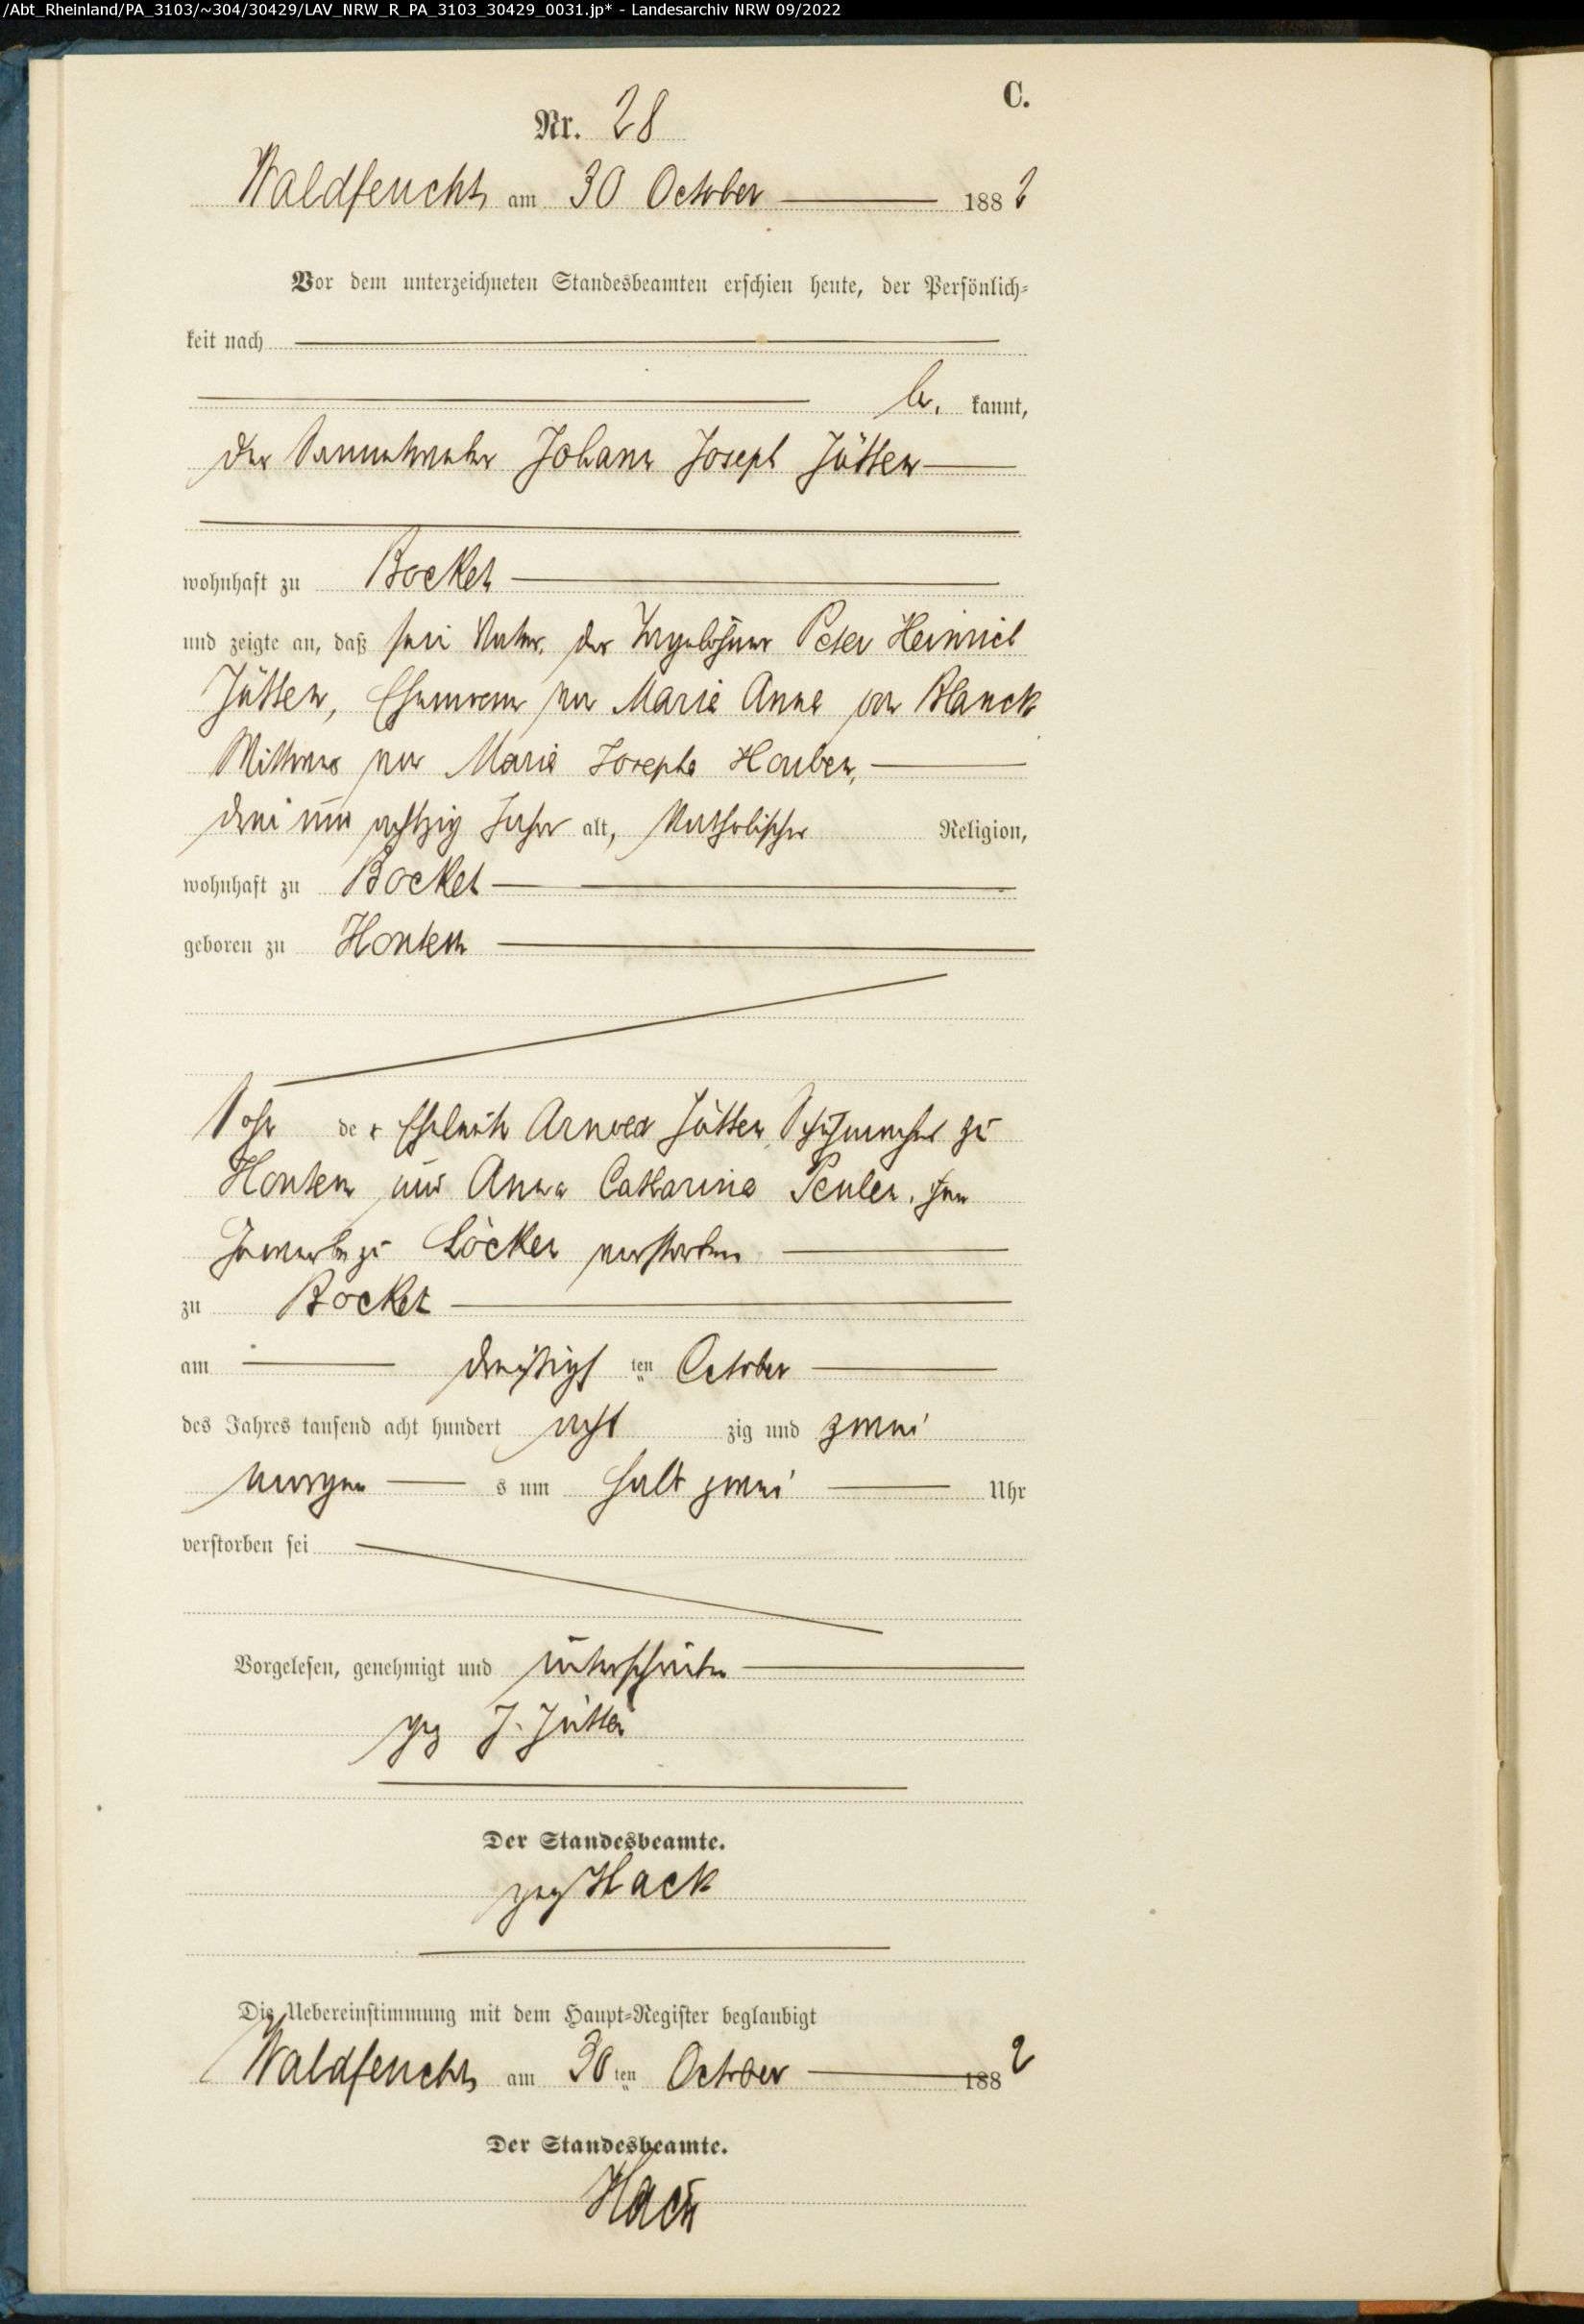 /Abt_Rheinland/PA_3103/~304/30429/LAV_NRW_R_PA_3103_30429_0031.jp* - Landesarchiv NRW 09/2022
C.
Nr. 28
Waldfeucht am 30 October 1882
Vor dem unterzeichneten Standesbeamten erschien heute, der Persönlich-
keit nach
be kannt,
der Sammetweber Johann Joseph Jütten
wohnhaft zu Bocket
und zeigte an, daß sein Vater, der Tagelöhner Peter Heinrich
Jütten, Ehemann von Maria Anna von Blanck
Wittwer von Maria Josepha Houben,
drei und achtzig Jahre alt, katholischer Religion,
wohnhaft zu Bocket
geboren zu Hontem
Sohn der Eheleute Arnold Jütten, Schuhmacher zu
Hontem und Anna Catharina Peulen,
zu Löcken verstorben
zu Bocket
am dreißigsten October
des Jahres tausend acht hundert acht zig und zwei
morgens um halb zwei Uhr
verstorben sei
Vorgelesen, genehmigt und unterschrieben
gez J. Jütten
Der Standesbeamte.
gez Hack
Die Uebereinstimmung mit dem Haupt-Register beglaubigt
Waldfeucht am 30ten October 1882
Der Standesbeamte.
Hack